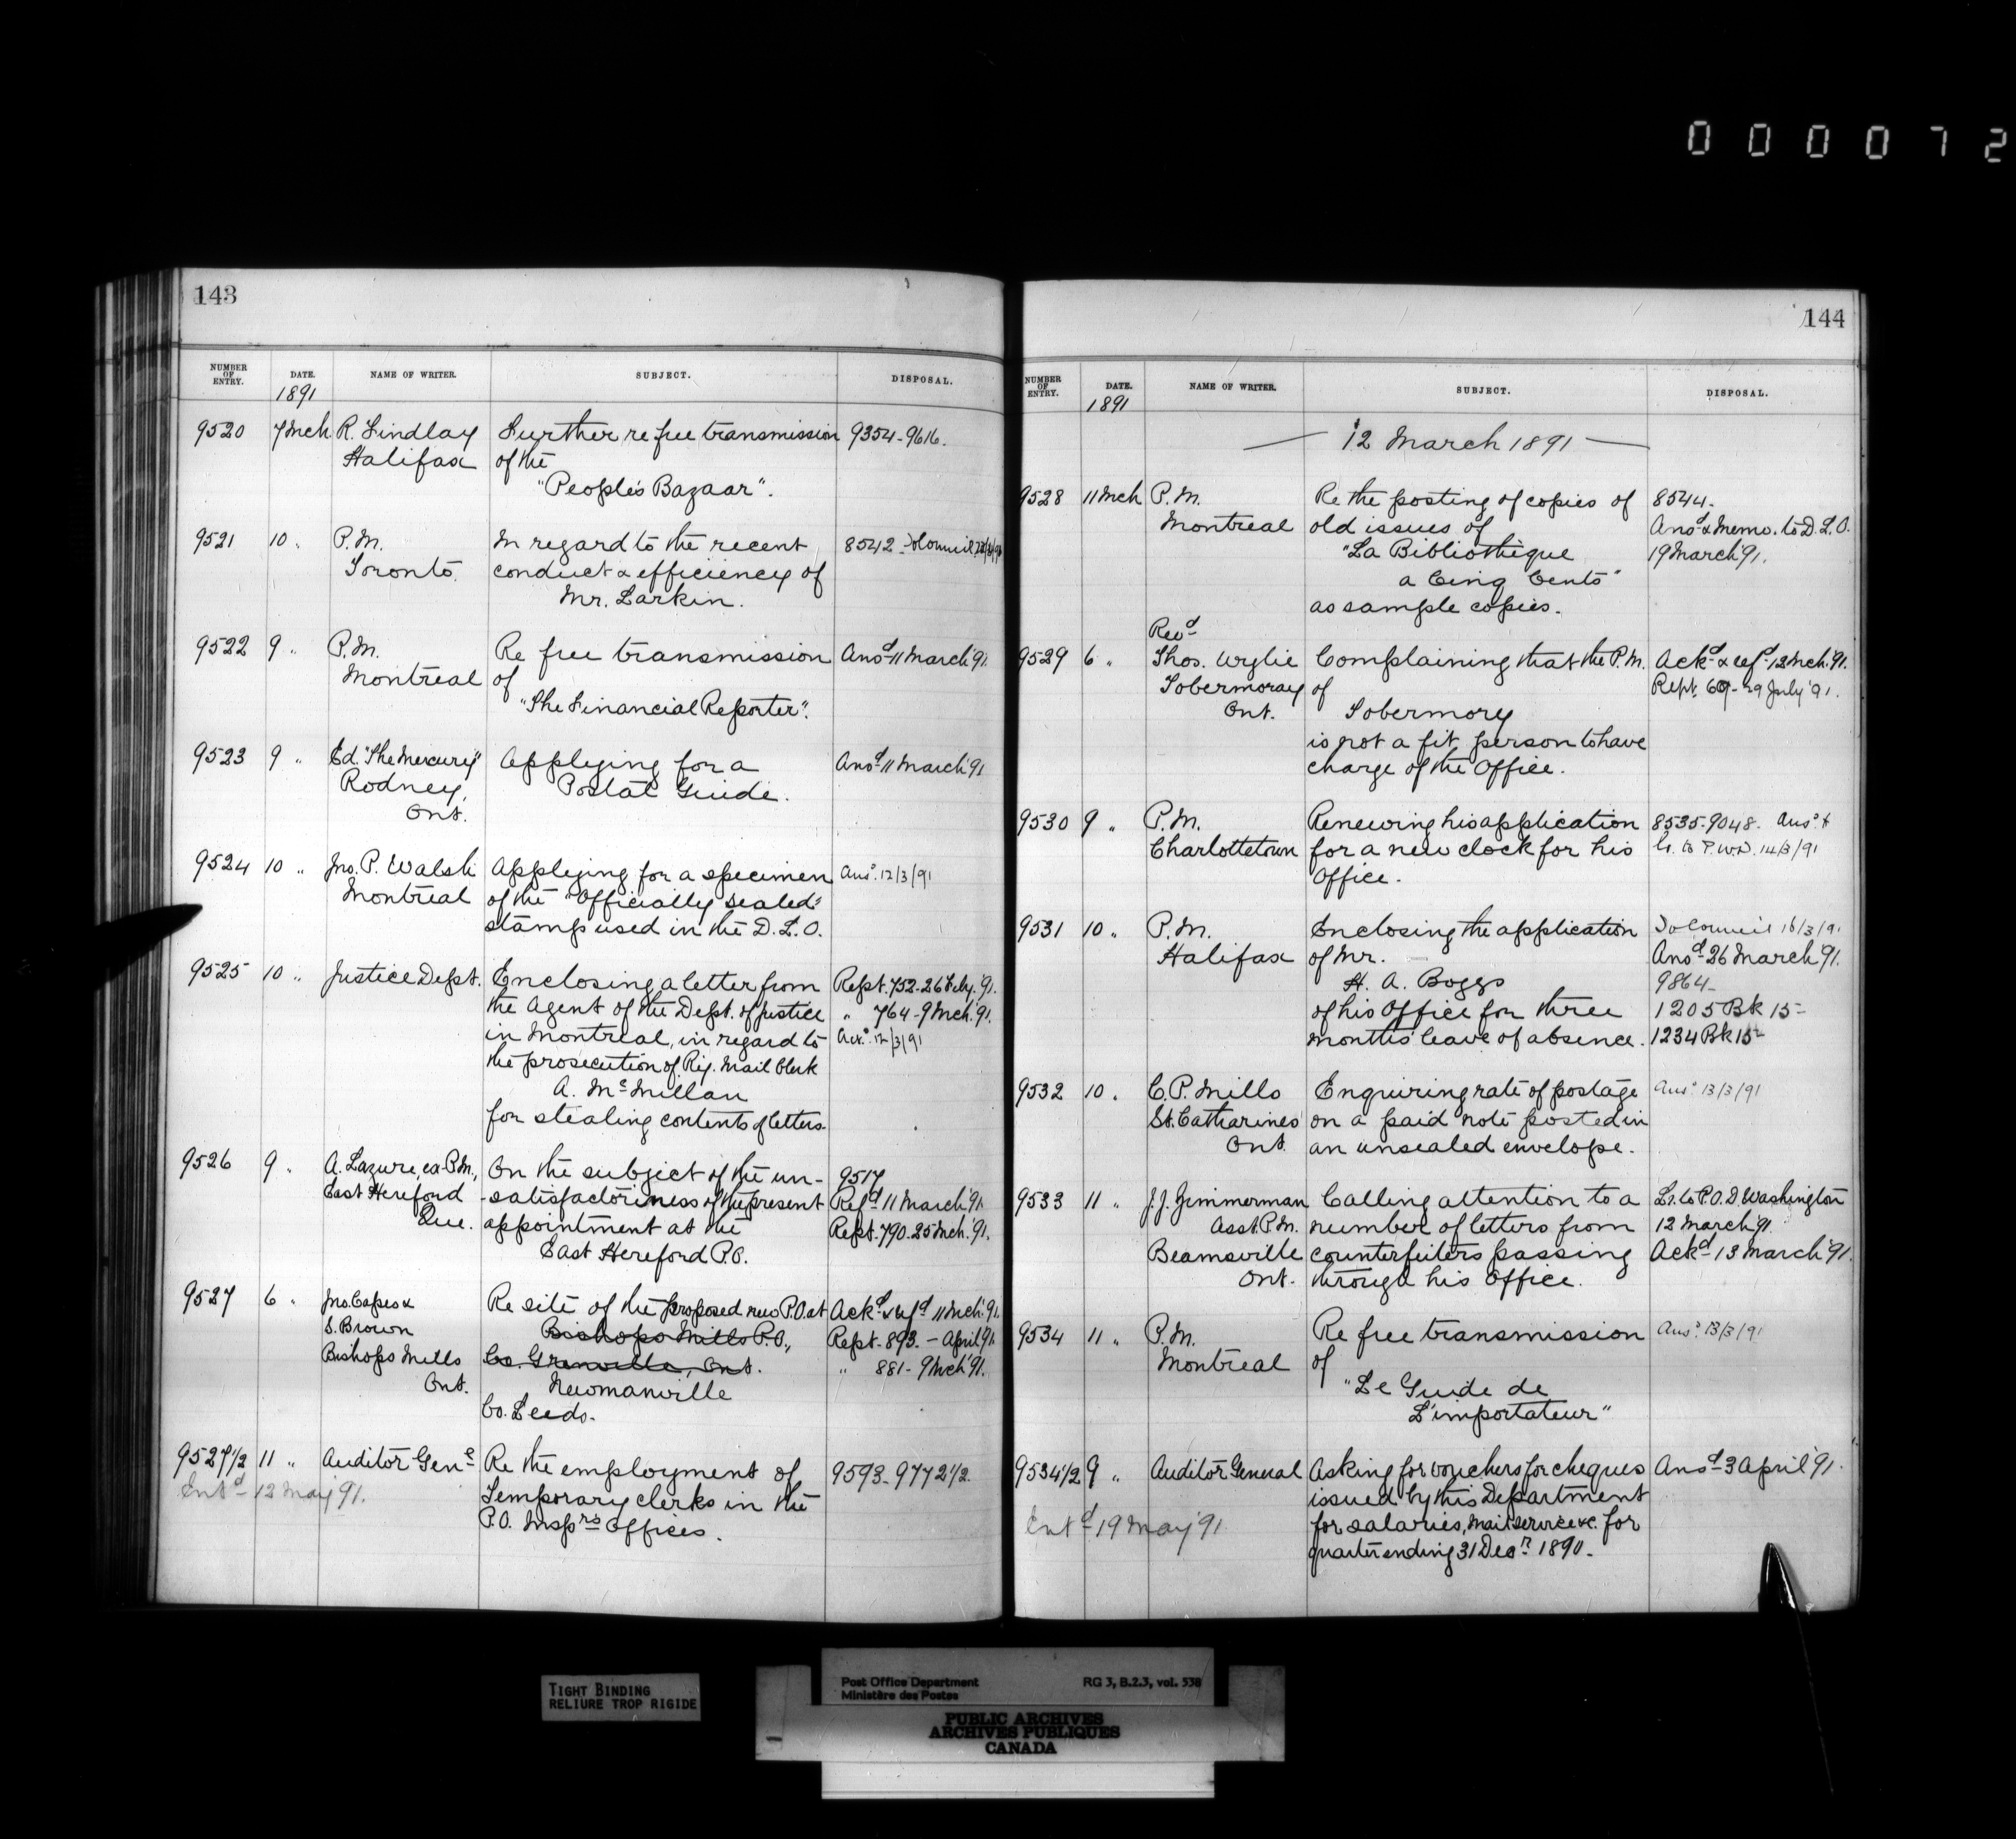 000072
143
NUMBER OF ENTRY. DATE. NAME OF WRITER. SUBJECT. DISPOSAL.
1891
9520 7 Mch R. Lindlay Further re free transmission 9354-9616.
Halifax of the
"People's Bazaar".
9521 10 " P.M. In regard to the recent 8542. To Council
Toronto. conduct & efficiency of
Mr. Larkin.
9522 9 " P.M. Re free transmission Ansd 11 March '91.
Montreal of
"The Financial Reporter".
9523 9 " Ed. "The Mercury" Applying for a Ansd 11 March '91
Rodney, Postal Guide.
Ont.
9524 10 " Jno. P. Walsh Applying for a specimen Ansd. 12/3/91
Montreal of the "Officially Sealed"
stamp used in the D.L.O.
9525 10 " Justice Dept. Enclosing a letter from Rept. 752-26 Feby. '91.
the Agent of the Dept. of Justice " 764-9 Mch. '91.
in Montreal, in regard to Ack. 12/3/91
the prosecution of Ry. Mail Clerk
A. McMillan
for stealing contents of letters.
9526 9 " A. Lazure, ex-P.M., On the subject of the un- 9517
East Hereford -satisfactoriness of the present Refd 11 March '91
Que. appointment at the Rept. 790-25 Mch. '91.
East Hereford P.O.
9527 6 " Jno. Capes & Re site of the proposed new P.O. at Ackd & refd 11 Mch. '91.
S. Brown Bishops Mills P.O., Rept. 893. - April '91
Bishops Mills Co. Grenville, Ont. " 881-9 Mch '91.
Ont. Newmanville
Co. Leeds.
9527½ 11 " Auditor Genl Re the employment of 9593-9772½.
Entd 12 May '91. Temporary clerks in the
P.O. Insprs Offices.
144
NUMBER OF ENTRY. DATE. NAME OF WRITER. SUBJECT. DISPOSAL.
1891
— 12 March 1891 —
9528 11 Mch P.M. Re the posting of copies of 8544.
Montreal old issues of Ansd & Memo. to D.L.O.
"La Bibliothèque 19 March '91.
a Cinq Cents"
as sample copies.
Revd
9529 6 " Thos. Wylie Complaining that the P.M. Ackd & refd 12 Mch. '91.
Tobermoray of Rept. 29 July '91.
Ont. Tobermory
is not a fit person to have
charge of the Office.
9530 9 " P.M. Renewing his application 8535-9048. Ansd. &
Charlottetown for a new clock for his Lr. to P.W.D. 14/3/91
Office.
9531 10 " P.M. Enclosing the application To Council 16/3/91
Halifax of Mr. Ansd 26 March '91.
H. A. Boggs 9864-
of his Office for three 1205 Bk 15-
months' leave of absence. 1234 Bk 15-
9532 10 " C. P. Mills Enquiring rate of postage Ansd. 13/3/91
St. Catharines on a paid note posted in
Ont. an unsealed envelope.
9533 11 " J. J. Zimmerman Calling attention to a Lr. to P.O.D. Washington
Asst. P.M. number of letters from 12 March '91
Beamsville counterfeiters passing Ackd 13 March '91.
Ont. through his Office.
9534 11 " P.M. Re free transmission Ansd. 13/3/91
Montreal of
"Le Guide de
L'importateur"
9534½ 9 " Auditor General Asking for vouchers for cheques Ansd 3 April '91.
issued by this Department
Entd 19 May '91 for salaries, mail service &c. for
quarter ending 31 Decr. 1890.
TIGHT BINDING
RELIURE TROP RIGIDE
Post Office Department RG 3, B.2.3, vol. 538
Ministère des Postes
PUBLIC ARCHIVES
ARCHIVES PUBLIQUES
CANADA